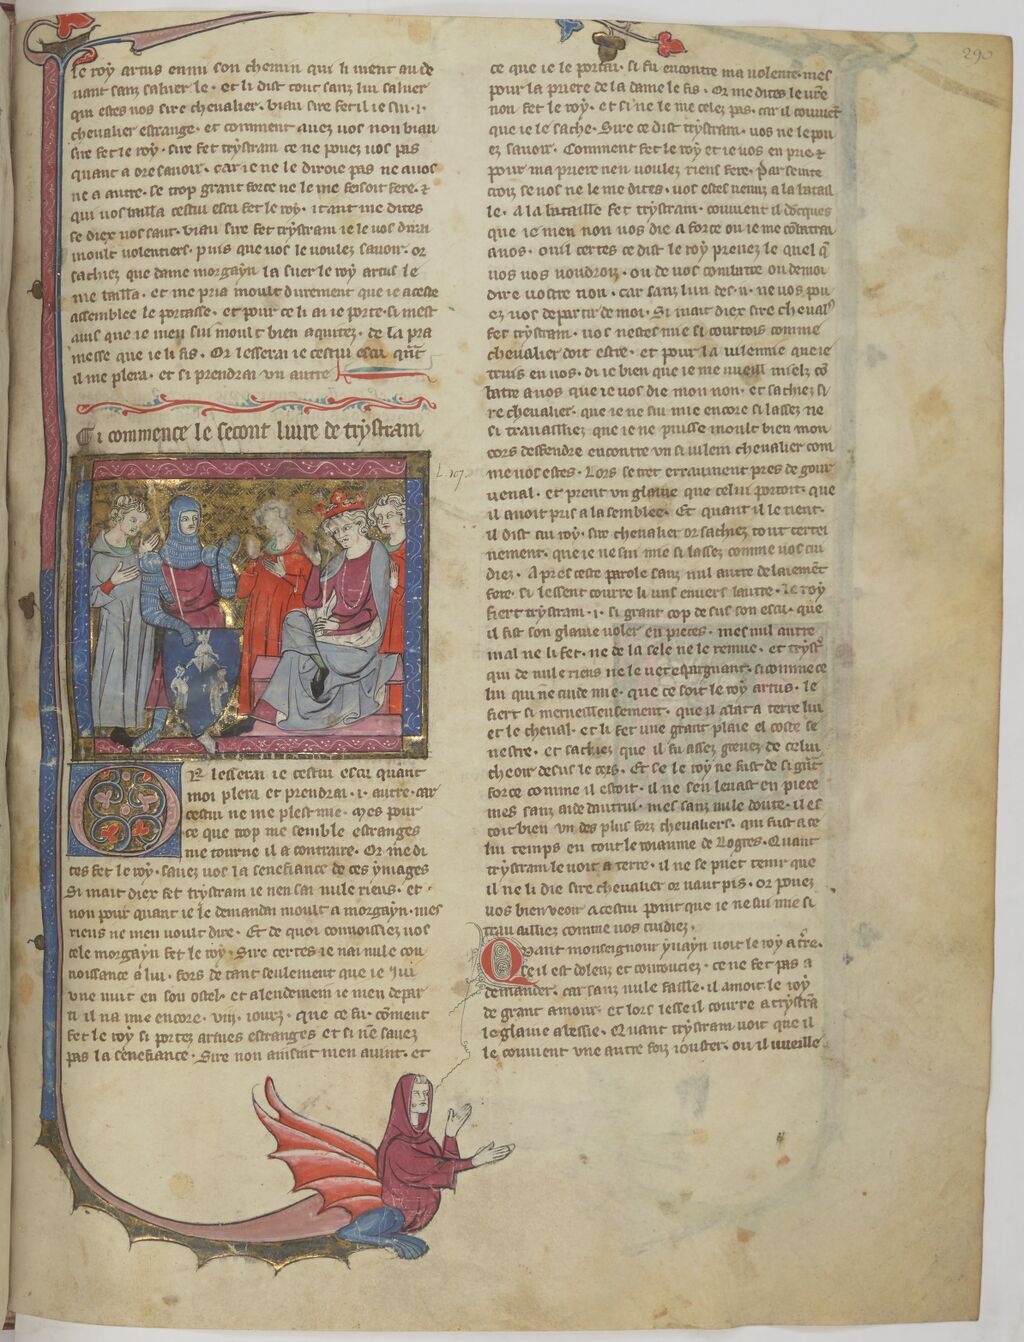 290
le roy artus enmi son chemin qui li vient au de
uant sanz saluer le · et li dist tout sanz lui saluer
qui estes uos sire cheualier · biau sire fet il ie sui ·i·
cheualier estrange · et comment auez uos non biau
sire fet le roy · sire fet trystram ce ne poez uos pas
quant a ore sauoir · car ie ne le diroie pas ne a uos
ne a autre · se trop grant force ne le me fesoit fere · et
qui uos bailla cestui escu fet le roy · itant me dites
se diex uos saut · biau sire fet trystram ie le uos dirai
moult uolentiers · puis que uos le uoulez sauoir · or
sachiez que dame morgayn la suer le roy artus le
me bailla · et me pria moult durement que ie a ceste
assemblee le portasse · et pour ce li ai ie porte · si mest
auis que ie men sui moult bien aquitez · de la pra
messe que ie li fis · Or lesserai ie cestui escu quant
il me plera · et si prendrai un autre
Ci commence le secont liure de trystram
L. 107.
Or lesserai ie cestui escu quant
moi plera et prendrai ·i· autre · car
cestui ne me plest mie · mes pour
ce que trop me semble estranges
me tourne il a contraire · Or me di
tes fet le roy · sauez uos la senefiance de ces ymages
Si mait diex fet trystram ie nen sai nule riens · et
non pour quant ie le demandai moult a morgayn · mes
riens ne men uoult dire · Et de quoi connoissiez uos
cele morgayn fet le roy · Sire certes ie nai nule con
noissance a lui · fors de tant seulement que ie jui
une nuit en son ostel · et a lendemein ie men depar
ti il na mie encore · viij · iourz · que ce fu · coment
fet le roy si portez armes estranges et si ne sauez
pas la senefiance · Sire non ainsint men auint · et
ce que ie le portai · si fu encontre ma uolente · mes
pour la priere de la dame le fis · Or me dites le uostre
non fet le roy · et si ne le me celez pas · car il couuient
que ie le sache · Sire ce dist trystram · uos ne le pou
ez sauoir · Comment fet le roy et ie uos en prie et
pour ma priere nen uoulez riens fere · Par seinte
croiz se uos ne le me dites · uos estes uenuz a la batail
le · a la bataille fet trystram · couuient il doncques
que ie mon non uos die a force ou ie me combatrai
a uos · ouil certes ce dist le roy prenez le quel que
uos uos uoudroiz · ou de uos combatre ou de moi
dire uostre non · car sanz lun des ·ii· ne uos pou
ez uos departir de moi · Si mait diex sire cheualier
fet trystram · uos nestes mie si courtois comme
cheualier doit estre · et pour la uilennie que ie
truis en uos · di ie bien que ie me uueill mielz com
batre a uos que ie uos die mon non · et sachiez si
re cheualier · que ie ne sui mie encore si lassez ne
si trauailliez que ie ne puisse moult bien mon
cors desfendre encontre un si uilein cheualier com
me uos estes · Lors se tret erraument pres de gour
uenal · et prent un glaiue que celui portoit · que
il auoit pris a lasemblee · Et quant il le tient ·
il dist au roy · sire cheualier or sachiez tout certei
nement · que ie ne sui mie si lassez comme uos cui
diez · Apres ceste parole sanz nul autre delaiement
fere · si lessent courre li uns enuers lautre · le roy
fiert trystram ·i· si grant cop desus son escu · que
il fist son glaiue uoler en pieces · mes nul autre
mal ne li fet · ne de la sele ne le remue · et trystram
qui de nule riens ne le uet espargnant · si comme ce
lui qui ne cuide mie · que ce soit le roy artus · le
fiert si merueilleusement · que il abat a terre lui
et le cheual · et li fet une grant plaie el coste se
nestre · et sachiez que il fu assez greuez de celui
cheoir desus le cors · Et se le roy ne fust de si grant
force comme il estoit · il ne sen leuast en piece
mes sanz aide dautrui · mes sanz nule doute · il es
toit bien un des plus forz cheualiers · qui fust a ce
lui temps en tout le roiaume de Logres · Quant
trystram le uoit a terre · il ne se puet tenir que
il ne li die sire cheualier or uaut pis · or poez
uos bien ueoir a cestui point que ie ne sui mie si
trauailliez comme uos cuidiez ·
Quant monseignour yuayn uoit le roy a terre ·
se il est dolenz et courouciez · ce ne fet pas a
demander · car sanz nule faille · il amoit le roy
de grant amour · et lors lesse il courre a trystram
le glaiue alessie · Quant trystram uoit que il
le couuient une autre foiz iouster · ou il uueille